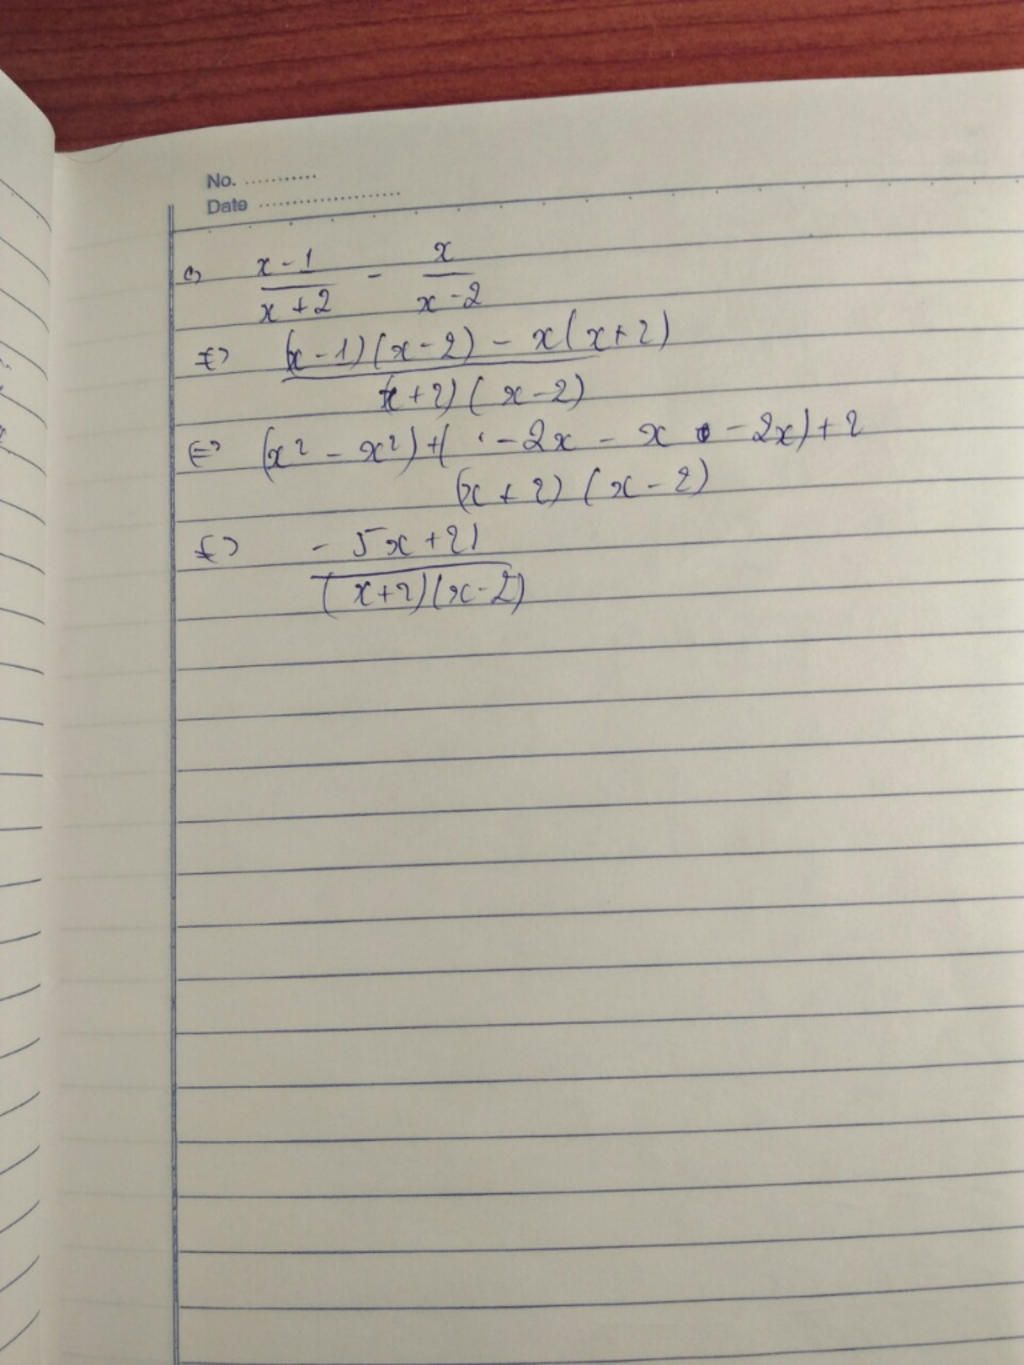 No. ...........
Date ....................
c) \frac{x-1}{x+2} - \frac{x}{x-2}
<=> \frac{(x-1)(x-2) - x(x+2)}{(x+2)(x-2)}
<=> \frac{(x² - x²) + (-2x - x - 2x) + 2}{(x+2)(x-2)}
<=> \frac{-5x+2}{(x+2)(x-2)}